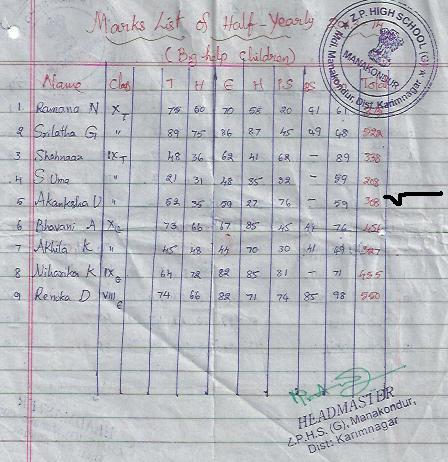 Marks List of Half-Yearly
(Big-help children)
Z.P. HIGH SCHOOL (G)
MANAKONDUR
Mdl. Manakondur, Dist. Karimnagar
Name Class T H E M P.S BS Total
1 Ramana N X T 75 60 70 58 20 41 61
2 Srilatha G " 89 75 86 27 45 49 68 522
3 Shehnaaz IX T 48 36 62 41 62 – 89 338
4 S Uma " 21 31 48 35 32 – 59 208
5 Akanksha U " 52 35 59 27 76 – 59 308
6 Bhavani A X 73 66 67 85 45 76 456
7 Akhila K " 45 48 44 70 30 41 327
8 Niharika K IX E 64 72 82 85 81 – 71 455
9 Renuka D VIII E 74 66 82 71 74 85 98 550
HEADMASTER
Z.P.H.S. (G), Manakondur,
Dist: Karimnagar